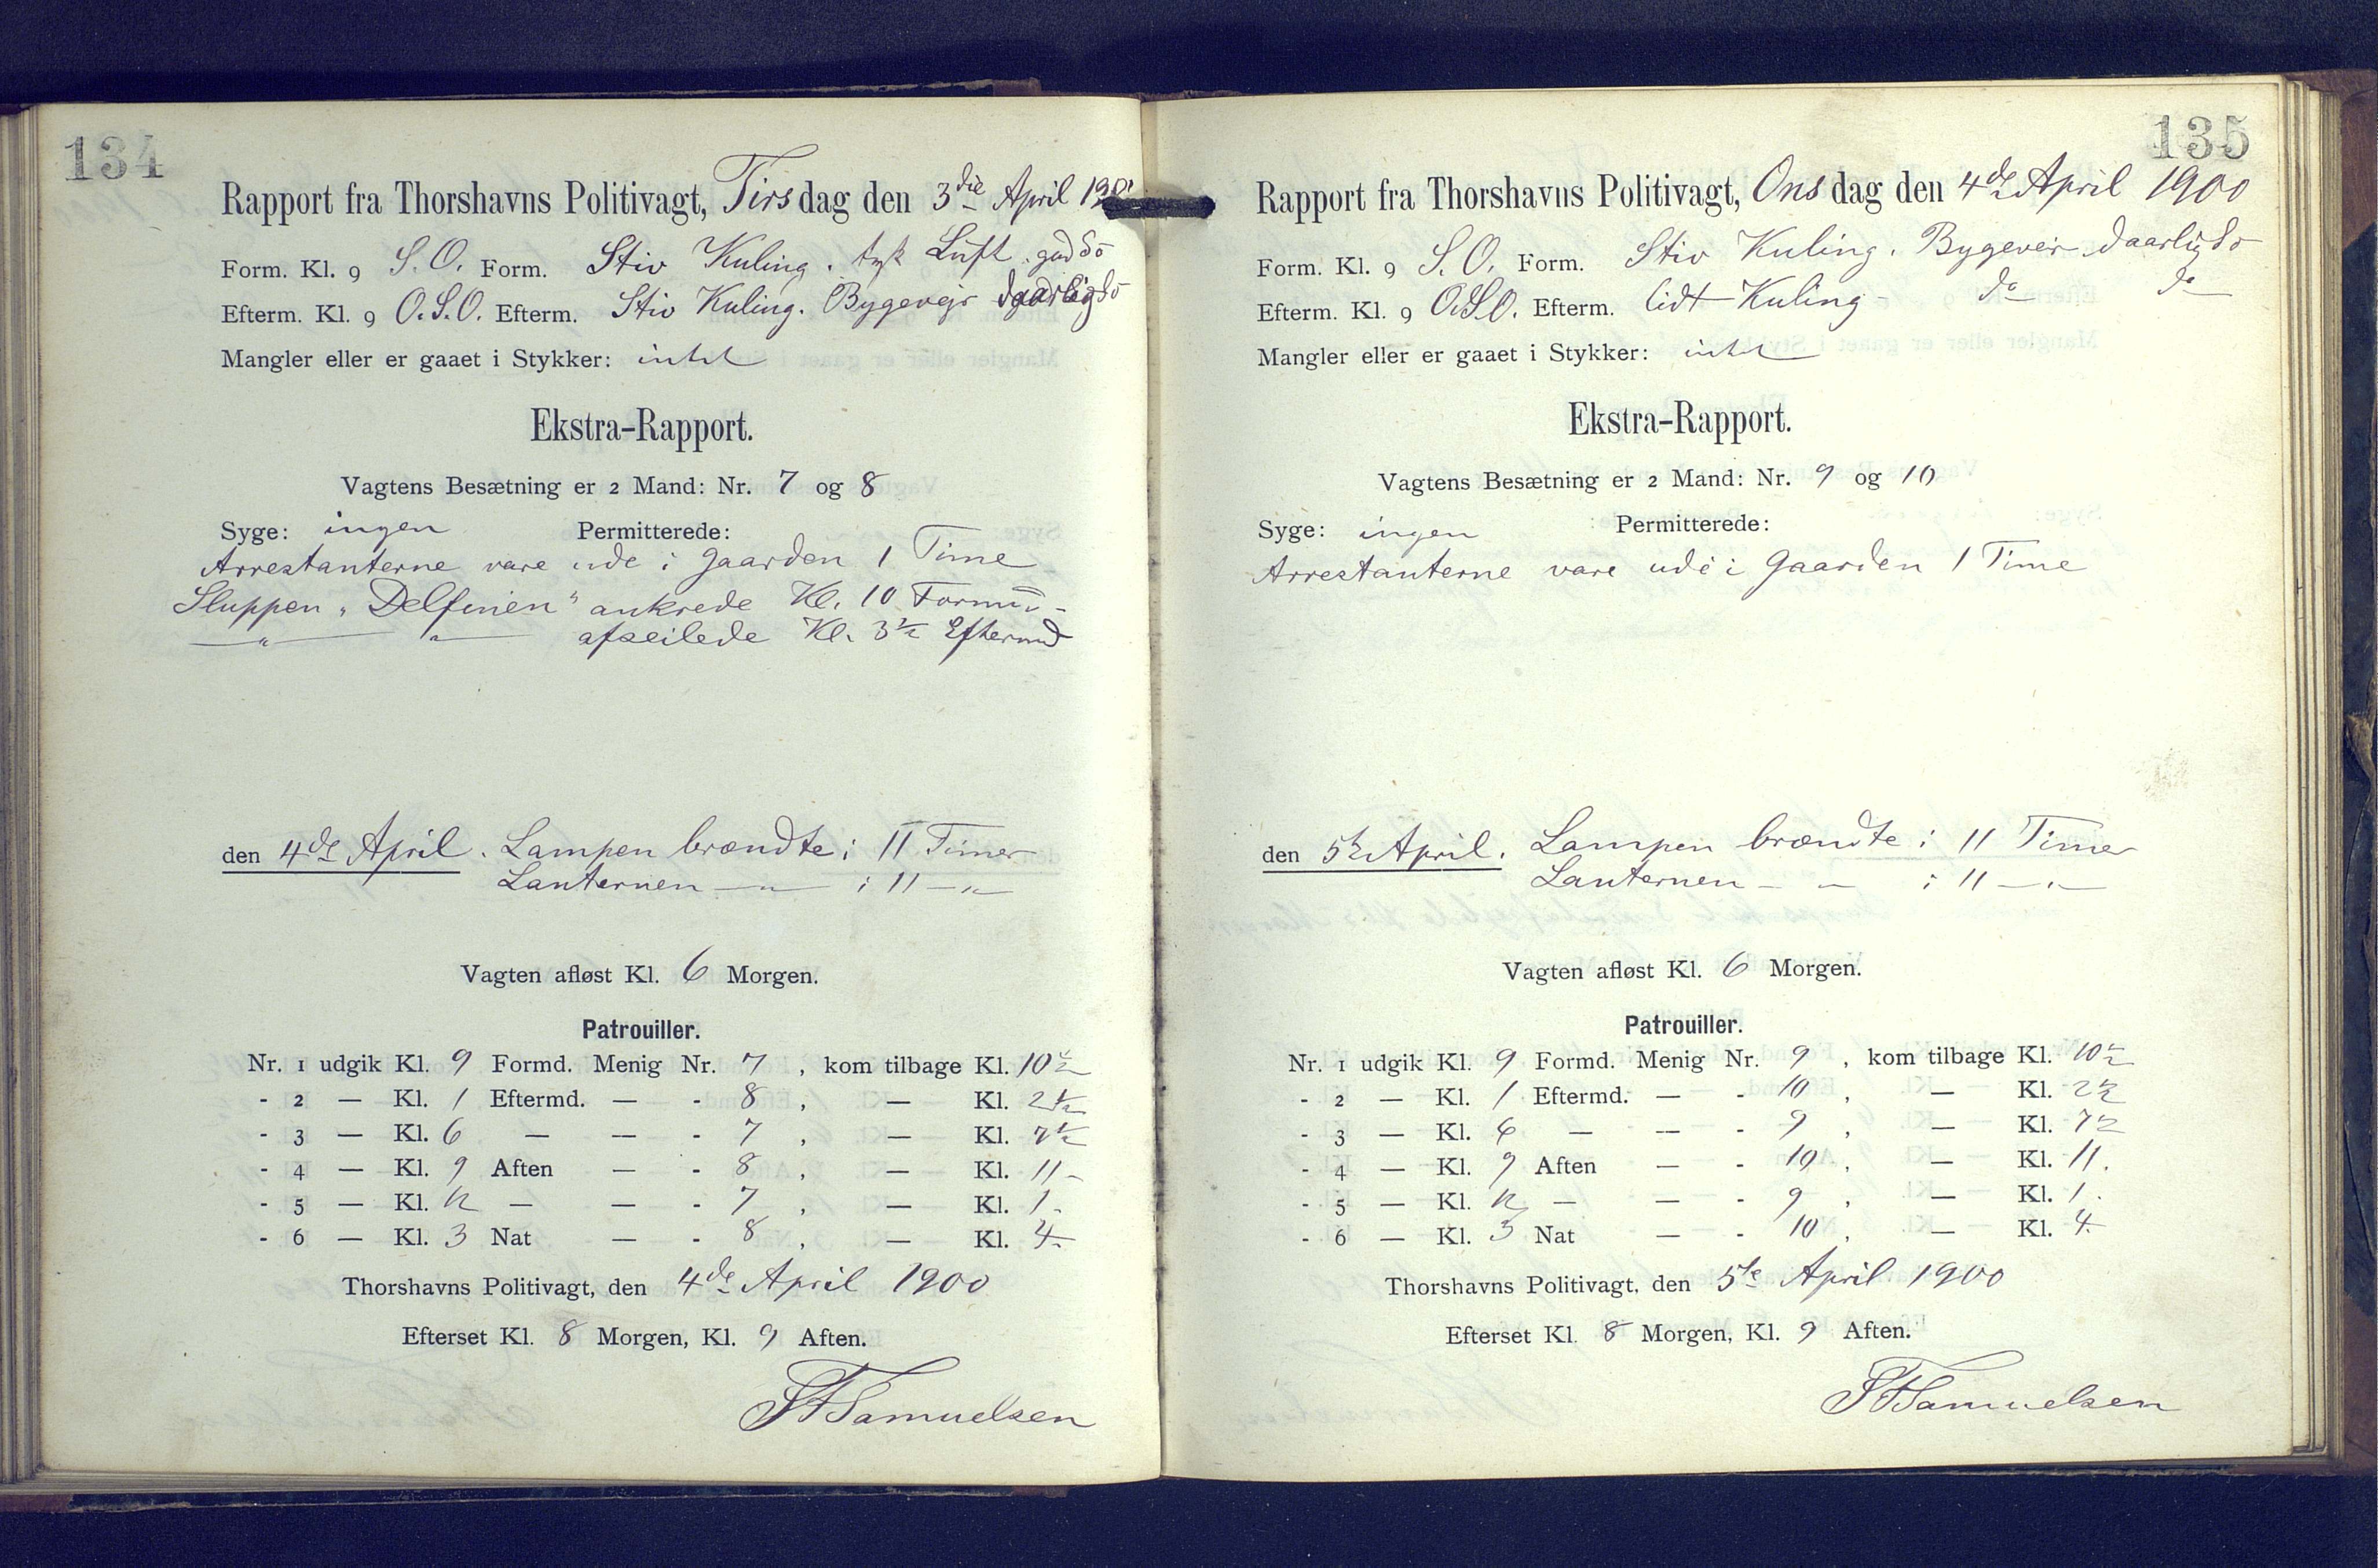 134
Rapport fra Thorshavns Politivagt, Tirsdag den 3die April
Form. Kl. 9 S.O. Form. Stiv Kuling. tyk Luft. god Sö
Efterm. Kl. 9 O.S.O. Efterm. Stiv Kuling. Bygevejr daarlig Sö
Mangler eller er gaaet i Stykker: intet
Ekstra-Rapport.
Vagtens Besætning er 2 Mand: Nr. 7 og 8
Syge: ingen Permitterede:
Arrestanterne vare ude i Gaarden 1 Time
Sluppen "Delfinen" ankrede Kl. 10 Formd
— " — " — afseilede Kl. 3½ Eftermd
den 4de April. Lampen brændte i 11 Timer
Lanternen — " — i 11 — " —
Vagten afløst Kl. 6 Morgen.
Patrouiller.
Nr. 1 udgik Kl. 9 Formd. Menig Nr. 7, kom tilbage Kl. 10½
- 2 — Kl. 1 Eftermd. — - 8, — Kl. 2½
- 3 — Kl. 6 — — - 7, — Kl. 7½
- 4 — Kl. 9 Aften — - 8, — Kl. 11 -
- 5 — Kl. 12 — — - 7, — Kl. 1 -
- 6 — Kl. 3 Nat — - 8, — Kl. 4 -
Thorshavns Politivagt, den 4de April 1900
Efterset Kl. 8 Morgen, Kl. 9 Aften.
Samuelsen
135
Rapport fra Thorshavns Politivagt, Onsdag den 4de April 1900
Form. Kl. 9 S.O. Form. Stiv Kuling. Bygeveir daarlig Sö
Efterm. Kl. 9 O.S.O. Efterm. lidt Kuling - do do
Mangler eller er gaaet i Stykker: intet
Ekstra-Rapport.
Vagtens Besætning er 2 Mand: Nr. 9 og 10
Syge: ingen Permitterede:
Arrestanterne vare ude i Gaarden 1 Time
den 5te April. Lampen brændte i 11 Timer
Lanternen - " - i 11 — " —
Vagten afløst Kl. 6 Morgen.
Patrouiller.
Nr. 1 udgik Kl. 9 Formd. Menig Nr. 9, kom tilbage Kl. 10½
- 2 — Kl. 1 Eftermd. — - 10, — Kl. 2½
- 3 — Kl. 6 — — - 9, — Kl. 7½
- 4 — Kl. 9 Aften — - 10, — Kl. 11.
- 5 — Kl. 12 — — - 9, — Kl. 1.
- 6 — Kl. 3 Nat — - 10, — Kl. 4.
Thorshavns Politivagt, den 5te April 1900
Efterset Kl. 8 Morgen, Kl. 9 Aften.
Samuelsen